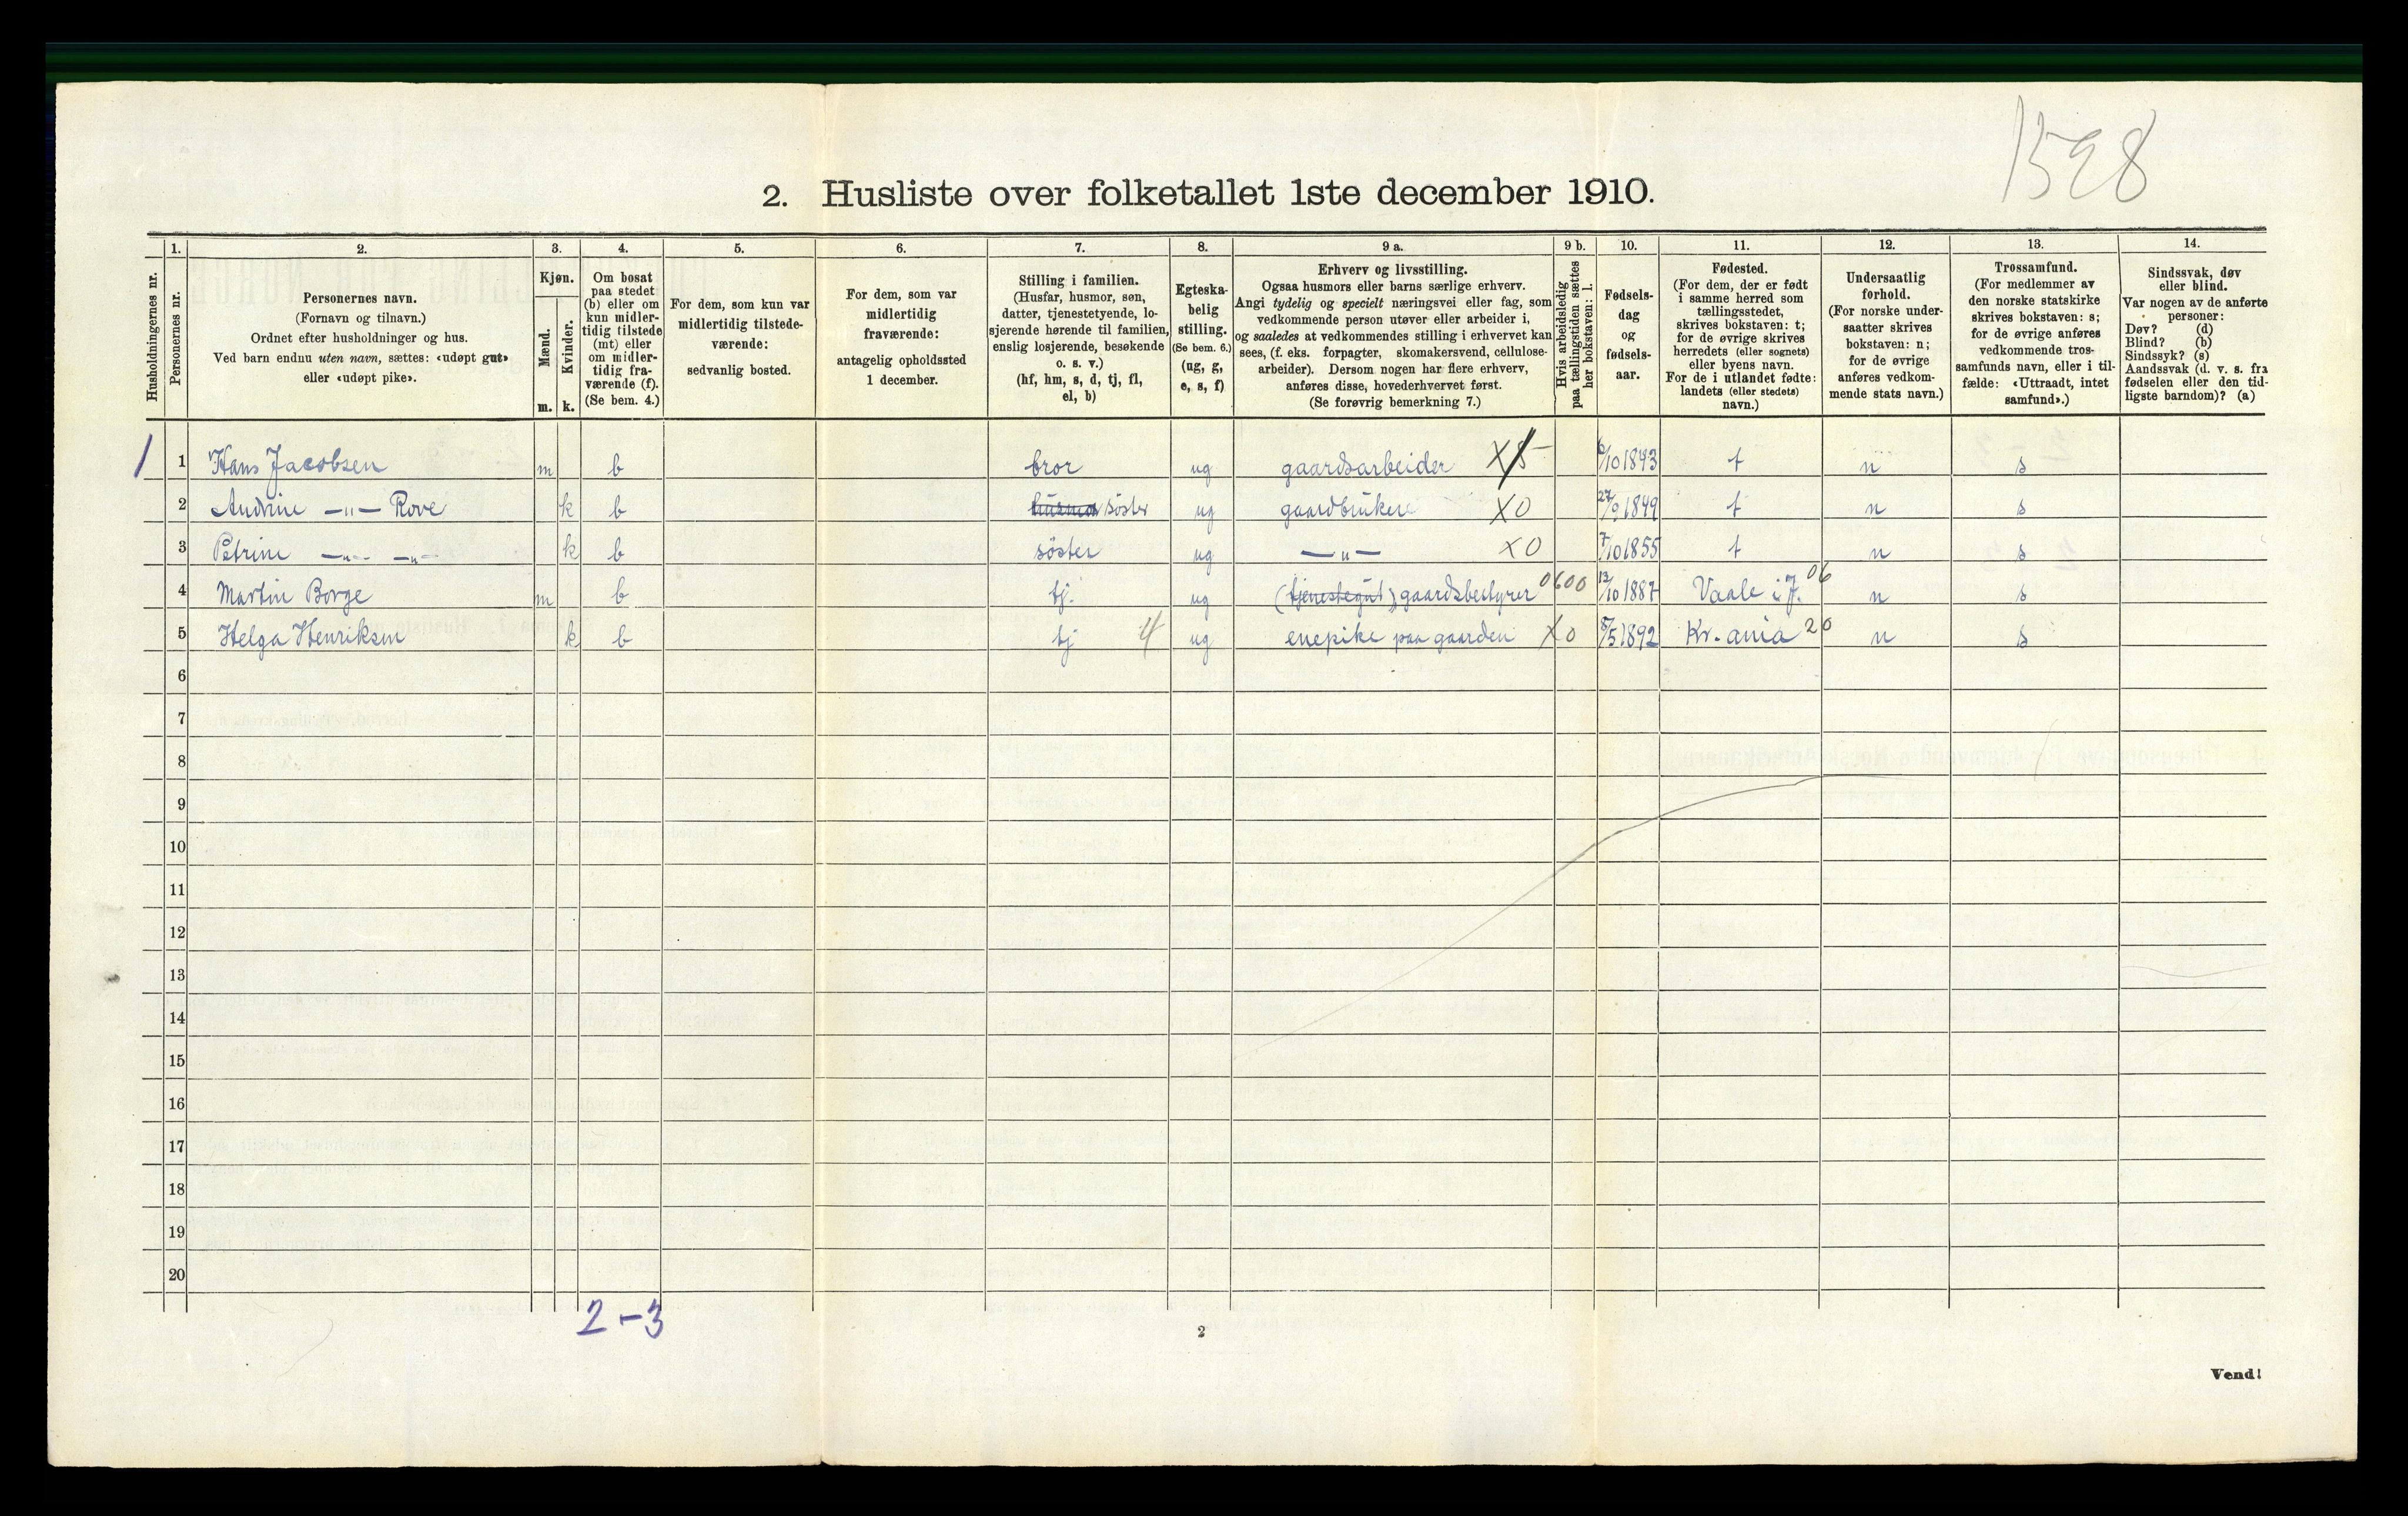 1598
2. Husliste over folketallet 1ste december 1910.
Husholdningernes nr.
1.
Personernes nr.
2.
Personernes navn.
(Fornavn og tilnavn.)
Ordnet efter husholdninger og hus.
Ved barn endnu uten navn, sættes: «udøpt gut»
eller «udøpt pike».
3.
Kjøn.
Mænd.
Kvinder.
m. k.
4.
Om bosat
paa stedet
(b) eller om
kun midler-
tidig tilstede
(mt) eller
om midler-
tidig fra-
værende (f).
(Se bem. 4.)
5.
For dem, som kun var
midlertidig tilstede-
værende:
sedvanlig bosted.
6.
For dem, som var
midlertidig
fraværende:
antagelig opholdssted
1 december.
7.
Stilling i familien.
(Husfar, husmor, søn,
datter, tjenestetyende, lo-
sjerende hørende til familien,
enslig losjerende, besøkende
o. s. v.)
(hf, hm, s, d, tj, fl,
el, b)
8.
Egteska-
belig
stilling.
(Se bem. 6.)
(ug, g,
e, s, f)
9 a.
Erhverv og livsstilling.
Ogsaa husmors eller barns særlige erhverv.
Angi tydelig og specielt næringsvei eller fag, som
vedkommende person utøver eller arbeider i,
og saaledes at vedkommendes stilling i erhvervet kan
sees, (f. eks. forpagter, skomakersvend, cellulose-
arbeider). Dersom nogen har flere erhverv,
anføres disse, hovederhvervet først.
(Se forøvrig bemerkning 7.)
9 b.
Hvis arbeidsledig
paa tællingstiden sættes
her bokstaven: l.
10.
Fødsels-
dag
og
fødsels-
aar.
11.
Fødested.
(For dem, der er født
i samme herred som
tællingsstedet,
skrives bokstaven: t;
for de øvrige skrives
herredets (eller sognets)
eller byens navn.
For de i utlandet fødte:
landets (eller stedets)
navn.)
12.
Undersaatlig
forhold.
(For norske under-
saatter skrives
bokstaven: n;
for de øvrige
anføres vedkom-
mende stats navn.)
13.
Trossamfund.
(For medlemmer av
den norske statskirke
skrives bokstaven: s;
for de øvrige anføres
vedkommende tros-
samfunds navn, eller i til-
fælde: «Uttraadt, intet
samfund».)
14.
Sindssvak, døv
eller blind.
Var nogen av de anførte
personer:
Døv? (d)
Blind? (b)
Sindssyk? (s)
Aandssvak (d. v. s. fra
fødselen eller den tid-
ligste barndom)? (a)
1 1 Hans Jacobsen m b bror ug gaardsarbeider X5 6/10 1843 t n s
2 Andrine —"— Rove k b søster ug gaardbrukere X0 27/9 1849 t n s
3 Petrine —"— —"— k b søster ug —"— X0 7/10 1855 t n s
4 Martin Borge m b tj. ug (tjenestegut) gaardsbestyrer 0600 13/10 1887 Vaale i J. 06 n s
5 Helga Henriksen k b tj 4 ug enepike paa gaarden X0 8/5 1892 Kr.ania 20 n s
6
7
8
9
10
11
12
13
14
15
16
17
18
19
20
2-3
2
Vend!